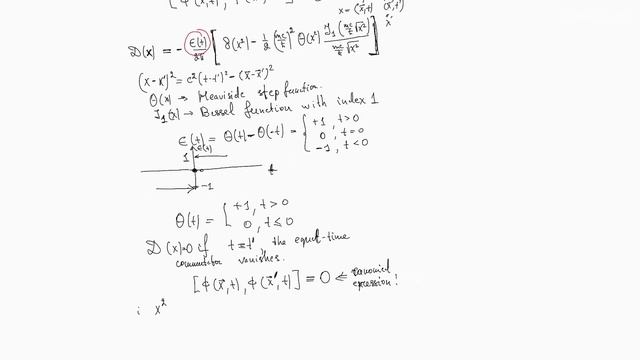 [ϕ(x⃗,t), ϕ(
x = (x⃗,t) (x⃗',t')
x'
D(x) = - ε(t)/2π [ δ(x²) - 1/2 (mc/ħ)² θ(x²) J₁(mc/ħ √x²) / (mc/ħ √x²) ]
(x-x')² = c²(t-t')² - (x⃗-x⃗')²
θ(x) → Heaviside step function.
J₁(x) → Bessel function with index 1
ε(t) = θ(t) - θ(-t) = { +1, t>0
0, t=0
-1, t<0
ε(t)
1
t
-1
θ(t) = { +1, t>0
0, t≤0
D(x)=0 if t=t', the equal-time
commutator vanishes.
[ϕ(x⃗,t), ϕ(x⃗',t)] = 0 ⇐ canonical
expression!
i x²